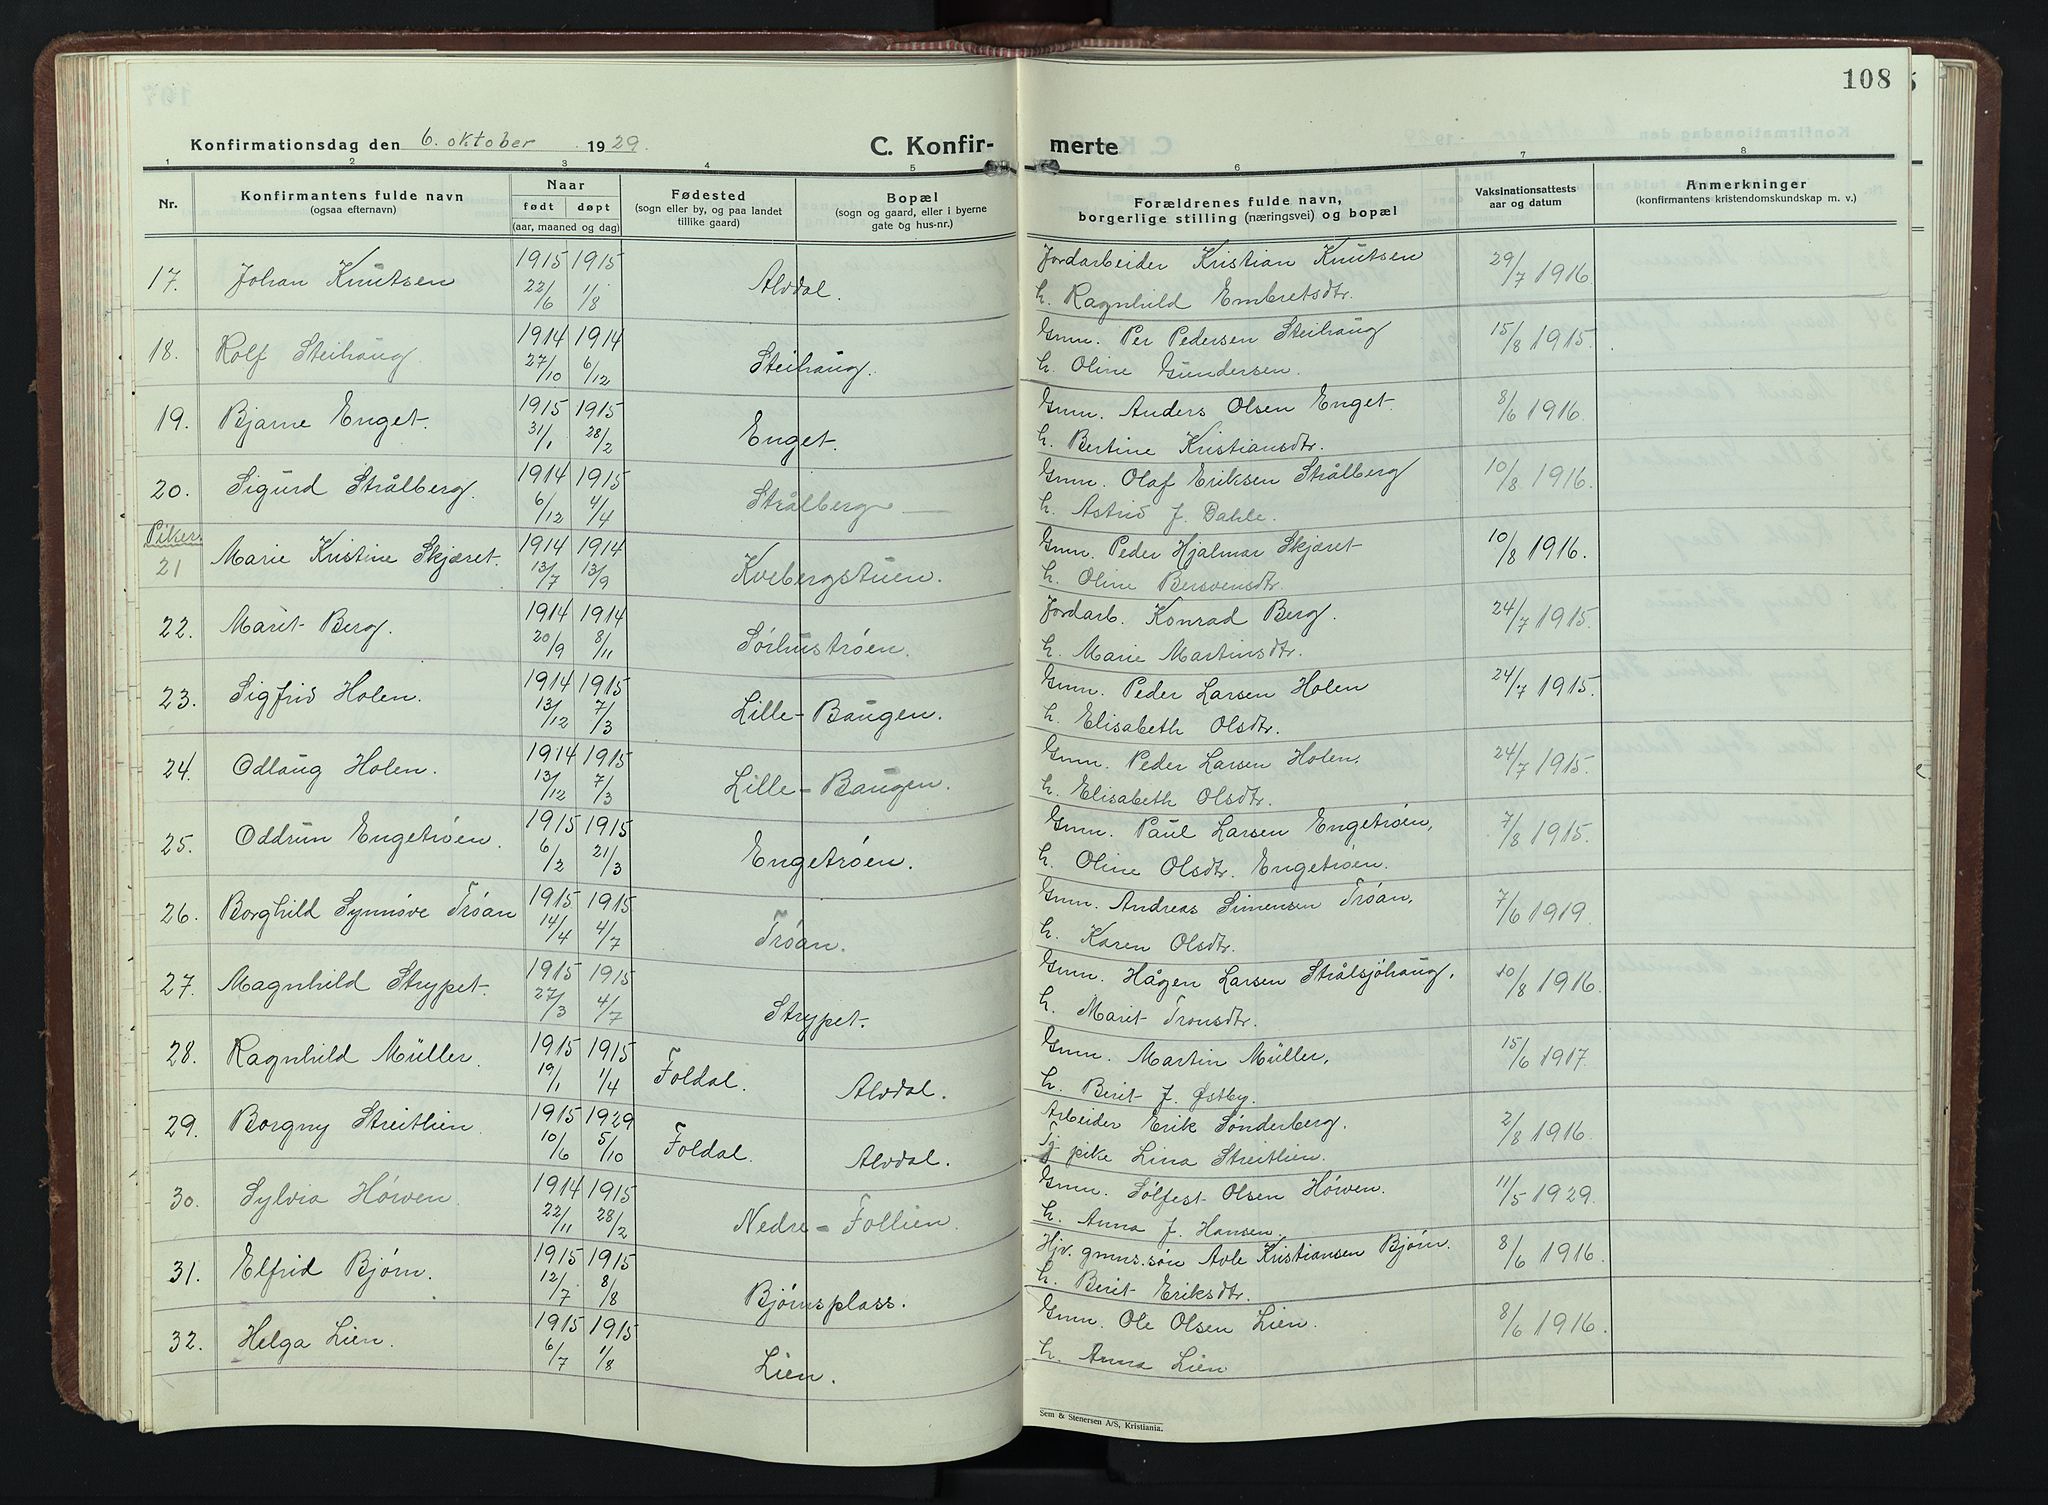 108
Konfirmationsdag den 6. oktober 1929.
C. Konfir-merte
1 2 3 4 5 6 7 8
Nr. Konfirmantens fulde navn (ogsaa efternavn) Naar født døpt (aar, maaned og dag) Fødested (sogn eller by, og paa landet tillike gaard) Bopæl (sogn og gaard, eller i byerne gate og hus-nr.) Forældrenes fulde navn, borgerlige stilling (næringsvei) og bopæl Vaksinationsattests aar og datum Anmerkninger (konfirmantens kristendomskundskap m. v.)
17. Johan Knutsen 1915 22/6 1915 1/8 Alvdal. Jordarbeider Kristian Knutsen h. Ragnhild Embretsdtr. 29/7 1916
18. Rolf Steihaug. 1914 27/10 1914 6/12 Steihaug. Gmn. Per Pedersen Steihaug h. Oline Gundersen. 15/8 1915.
19. Bjarne Enget. 1915 31/1 1915 28/2 Enget. Gmn. Anders Olsen Enget. h. Bertine Kristiansdtr. 8/6 1916.
20. Sigurd Strålberg. 1914 6/12 1915 4/4 Strålberg Gmn. Olaf Eriksen Strålberg h. Astrid J. Dahle. 10/8 1916.
Piker.
21 Marie Kristine Skjæret. 1914 13/7 1914 13/9 Kvebergstuen. Gmn. Peder Hjalmar Skjæret h. Oline Bersvensdtr. 10/8 1916.
22. Marit Berg. 1914 20/9 1914 8/11 Sørhustrøen. Jordarb. Konrad Berg. h. Marie Martinsdtr. 24/7 1915.
23. Sigfrid Holen. 1914 13/12 1915 7/3 Lille-Baugen. Gmn. Peder Larsen Holen h. Elisabeth Olsdtr. 24/7 1915.
24. Odlaug Holen. 1914 13/12 1915 7/3 Lille-Baugen. Gmn. Peder Larsen Holen. h. Elisabeth Olsdtr. 24/7 1915.
25. Oddrun Engetrøen. 1915 6/2 1915 21/3 Engetrøen. Gmn. Paul Larsen Engetrøen, h. Oline Olsdtr. Engetrøen. 7/8 1915.
26. Borghild Synnøve Trøan 1915 14/4 1915 4/7 Trøan. Gmn. Andreas Simensen Trøan, h. Karen Olsdtr. 7/6 1919.
27. Magnhild Strypet. 1915 27/3 1915 4/7 Strypet. Gmn. Hågen Larsen Strålsjøhaug, h. Marit Tronsdtr. 10/8 1916.
28. Ragnhild Müller. 1915 19/1 1915 1/4 Foldal. Alvdal. Gmn. Martin Müller, h. Berit J. Østby. 15/6 1917.
29. Borgny Streitlien. 1915 10/6 1929 5/10 Foldal. Alvdal. Arbeider Erik Sønderberg. Tj. pike Lina Streitlien. 2/8 1916.
30. Sylvia Høwen. 1914 22/11 1915 28/2 Nedre-Follien. Gmn. Sølfest Olsen Høwen. h. Anna J. Hansen. 11/5 1929.
31. Elfrid Bjørn. 1915 12/7 1915 8/8 Bjørnsplass. Hjv. gmns. søn Avle Kristiansen Bjørn. h. Berit Eriksdtr. 8/6 1916.
32. Helga Lien. 1915 6/7 1915 1/8 Lien. Gmn. Ole Olsen Lien. h. Anna Lien 8/6 1916.
Sem & Stenersen A/S, Kristiania.